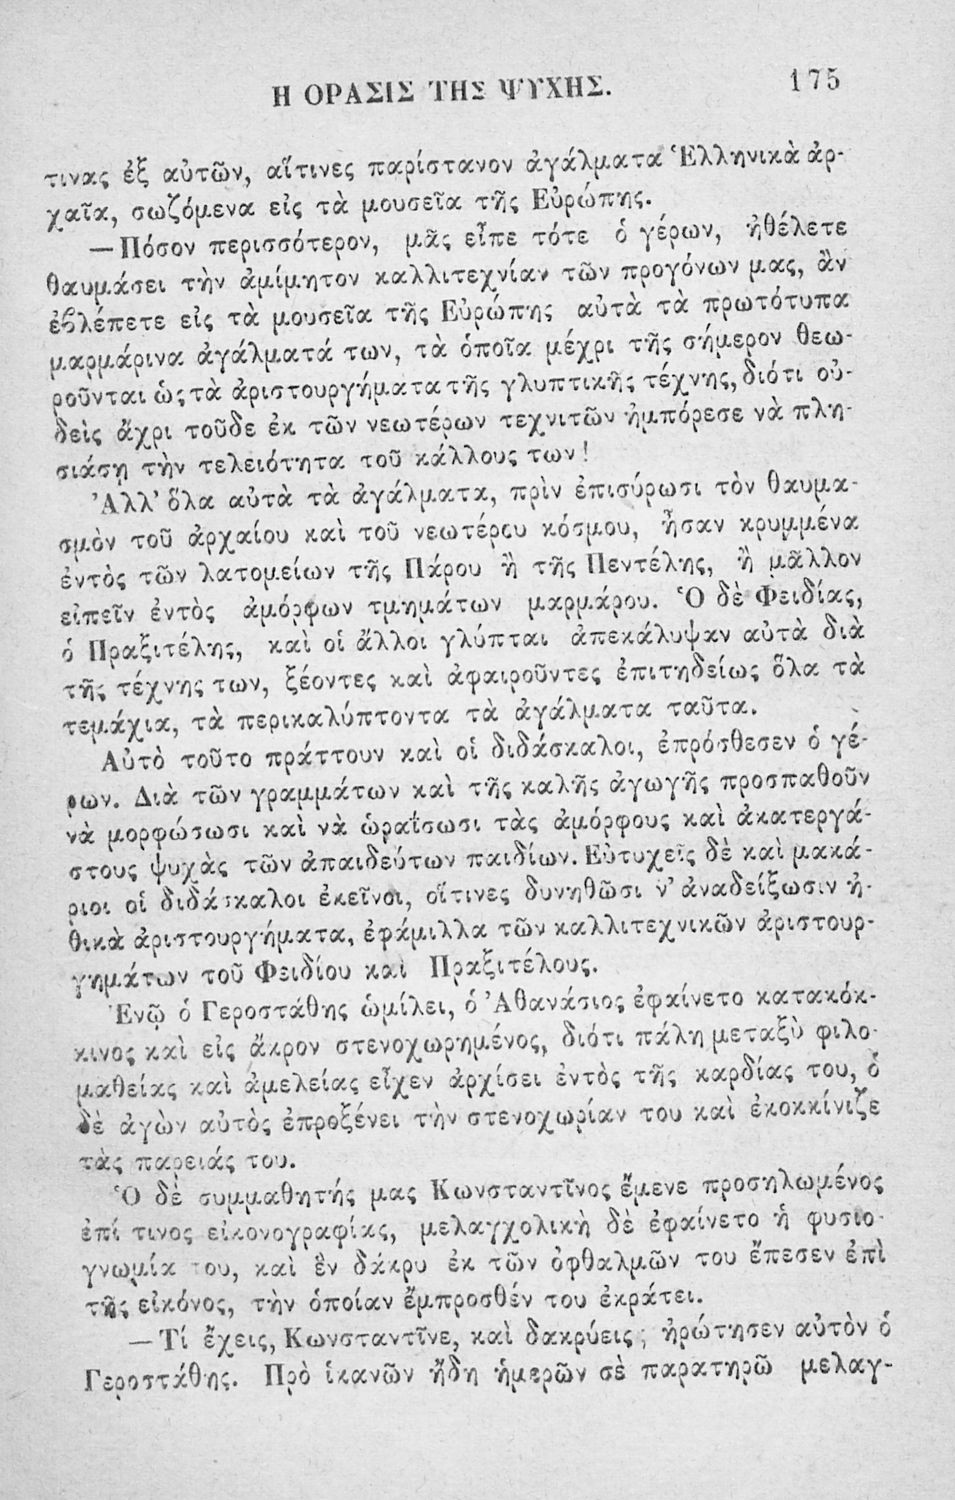 Η ΟΡΑΣΙΣ ΤΗΣ ΨΥΧΗΣ. 175
τινας ἐξ αὐτῶν, αἵτινες παρίστανον ἀγάλματα Ἑλληνικὰ ἀρ-
χαῖα, σωζόμενα εἰς τὰ μουσεῖα τῆς Εὐρώπης.
— Πόσον περισσότερον, μᾶς εἶπε τότε ὁ γέρων, ἠθέλετε
θαυμάσει τὴν ἀμίμητον καλλιτεχνίαν τῶν προγόνων μας, ἂν
ἐβλέπετε εἰς τὰ μουσεῖα τῆς Εὐρώπης αὐτὰ τὰ πρωτότυπα
μαρμάρινα ἀγάλματά των, τὰ ὁποῖα μέχρι τῆς σήμερον θεω-
ροῦνται ὡς τὰ ἀριστουργήματα τῆς γλυπτικῆς τέχνης, διότι οὐ-
δεὶς ἄχρι τοῦδε ἐκ τῶν νεωτέρων τεχνιτῶν ἠμπόρεσε νὰ πλη-
σιάσῃ τὴν τελειότητα τοῦ κάλλους των!
Ἀλλ’ ὅλα αὐτὰ τὰ ἀγάλματα, πρὶν ἐπισύρωσι τὸν θαυμα-
σμὸν τοῦ ἀρχαίου καὶ τοῦ νεωτέρου κόσμου, ἦσαν κρυμμένα
ἐντὸς τῶν λατομείων τῆς Πάρου ἢ τῆς Πεντέλης, ἢ μᾶλλον
εἰπεῖν ἐντὸς ἀμόρφων τμημάτων μαρμάρου. Ὁ δὲ Φειδίας,
ὁ Πραξιτέλης, καὶ οἱ ἄλλοι γλύπται ἀπεκάλυψαν αὐτὰ διὰ
τῆς τέχνης των, ξέοντες καὶ ἀφαιροῦντες ἐπιτηδείως ὅλα τὰ
τεμάχια, τὰ περικαλύπτοντα τὰ ἀγάλματα ταῦτα.
Αὐτὸ τοῦτο πράττουν καὶ οἱ διδάσκαλοι, ἐπρόσθεσεν ὁ γέ-
ρων. Διὰ τῶν γραμμάτων καὶ τῆς καλῆς ἀγωγῆς προσπαθοῦν
νὰ μορφώσωσι καὶ νὰ ὡραΐσωσι τὰς ἀμόρφους καὶ ἀκατεργά-
στους ψυχὰς τῶν ἀπαιδεύτων παιδίων. Εὐτυχεῖς δὲ καὶ μακά-
ριοι οἱ διδάσκαλοι ἐκεῖνοι, οἵτινες δυνηθῶσι ν’ ἀναδείξωσιν ἠ-
θικὰ ἀριστουργήματα, ἐφάμιλλα τῶν καλλιτεχνικῶν ἀριστουρ-
γημάτων τοῦ Φειδίου καὶ Πραξιτέλους.
Ἐνῷ ὁ Γεροστάθης ὡμίλει, ὁ Ἀθανάσιος ἐφαίνετο κατακόκ-
κινος καὶ εἰς ἄκρον στενοχωρημένος, διότι πάλη μεταξὺ φιλο-
μαθείας καὶ ἀμελείας εἶχεν ἀρχίσει ἐντὸς τῆς καρδίας του, ὁ
δὲ ἀγὼν αὐτὸς ἐπροξένει τὴν στενοχωρίαν του καὶ ἐκοκκίνιζε
τὰς παρειάς του.
Ὁ δὲ συμμαθητής μας Κωνσταντῖνος ἔμενε προσηλωμένος
ἐπί τινος εἰκονογραφίας, μελαγχολικὴ δὲ ἐφαίνετο ἡ φυσιο-
γνωμία του, καὶ ἓν δάκρυ ἐκ τῶν ὀφθαλμῶν του ἔπεσεν ἐπὶ
τῆς εἰκόνος, τὴν ὁποίαν ἔμπροσθέν του ἐκράτει.
— Τί ἔχεις, Κωνσταντῖνε, καὶ δακρύεις; ἠρώτησεν αὐτὸν ὁ
Γεροστάθης. Πρὸ ἱκανῶν ἤδη ἡμερῶν σὲ παρατηρῶ μελαγ-